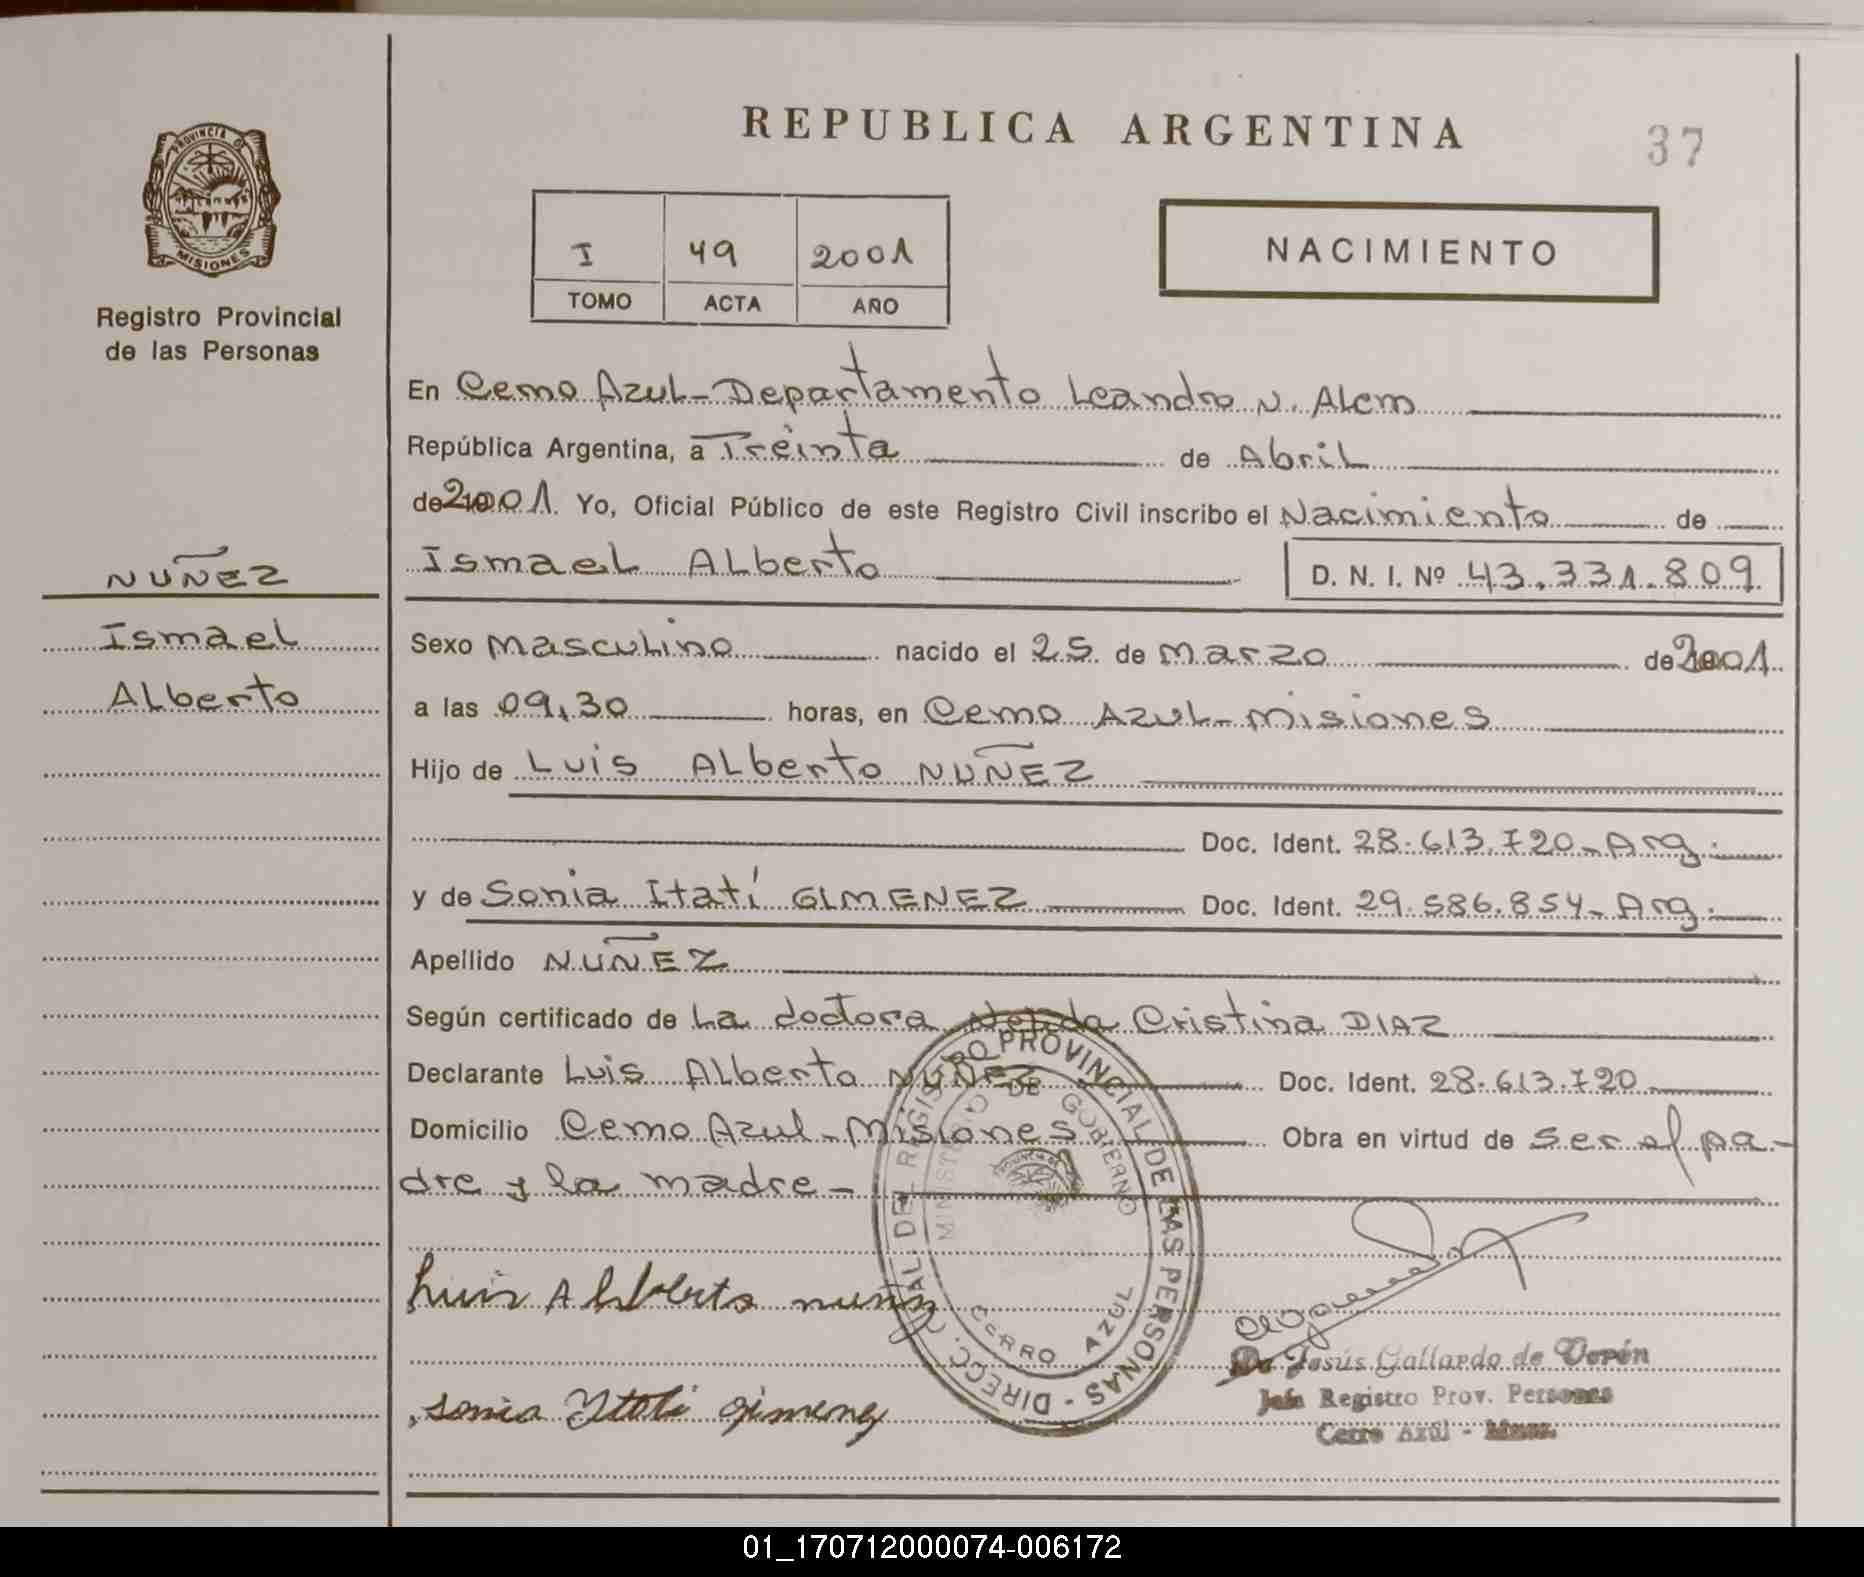 REPUBLICA ARGENTINA
37
PROVINCIA DE
MISIONES
Registro Provincial
de las Personas
I 49 2001
TOMO ACTA AÑO
NACIMIENTO
En Cerro Azul - Departamento Leandro N. Alem
República Argentina, a Treinta de Abril
de 2001. Yo, Oficial Público de este Registro Civil inscribo el Nacimiento de
Ismael Alberto D. N. I. Nº 43.331.809
NUÑEZ
Ismael
Alberto
Sexo Masculino nacido el 25 de Marzo de 2001
a las 09,30 horas, en Cerro Azul - Misiones
Hijo de Luis Alberto NUÑEZ
Doc. Ident. 28.613.720 - Arg.
y de Sonia Itatí GIMENEZ Doc. Ident. 29.586.854 - Arg.
Apellido NUÑEZ
Según certificado de La doctora Nelida Cristina DIAZ
Declarante Luis Alberto NUÑEZ Doc. Ident. 28.613.720
Domicilio Cerro Azul - Misiones Obra en virtud de ser el pa-
dre y la madre -
DIRECC. GRAL. DEL REGISTRO PROVINCIAL DE LAS PERSONAS -
MINISTERIO DE GOBIERNO
CERRO AZUL
Luis Alberto nuñez
sonia Ytati gimenez
Jesús Gallardo de Verón
Jefa Registro Prov. Personas
Cerro Azúl - Mnes.
01_170712000074-006172